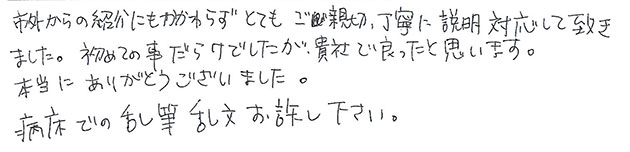 市外からの紹介にもかかわらずとても ご親切、丁寧に説明対応して致き
ました。初めての事だらけでしたが、貴社で良ったと思います。
本当にありがとうございました。
病床での乱筆乱文お許し下さい。